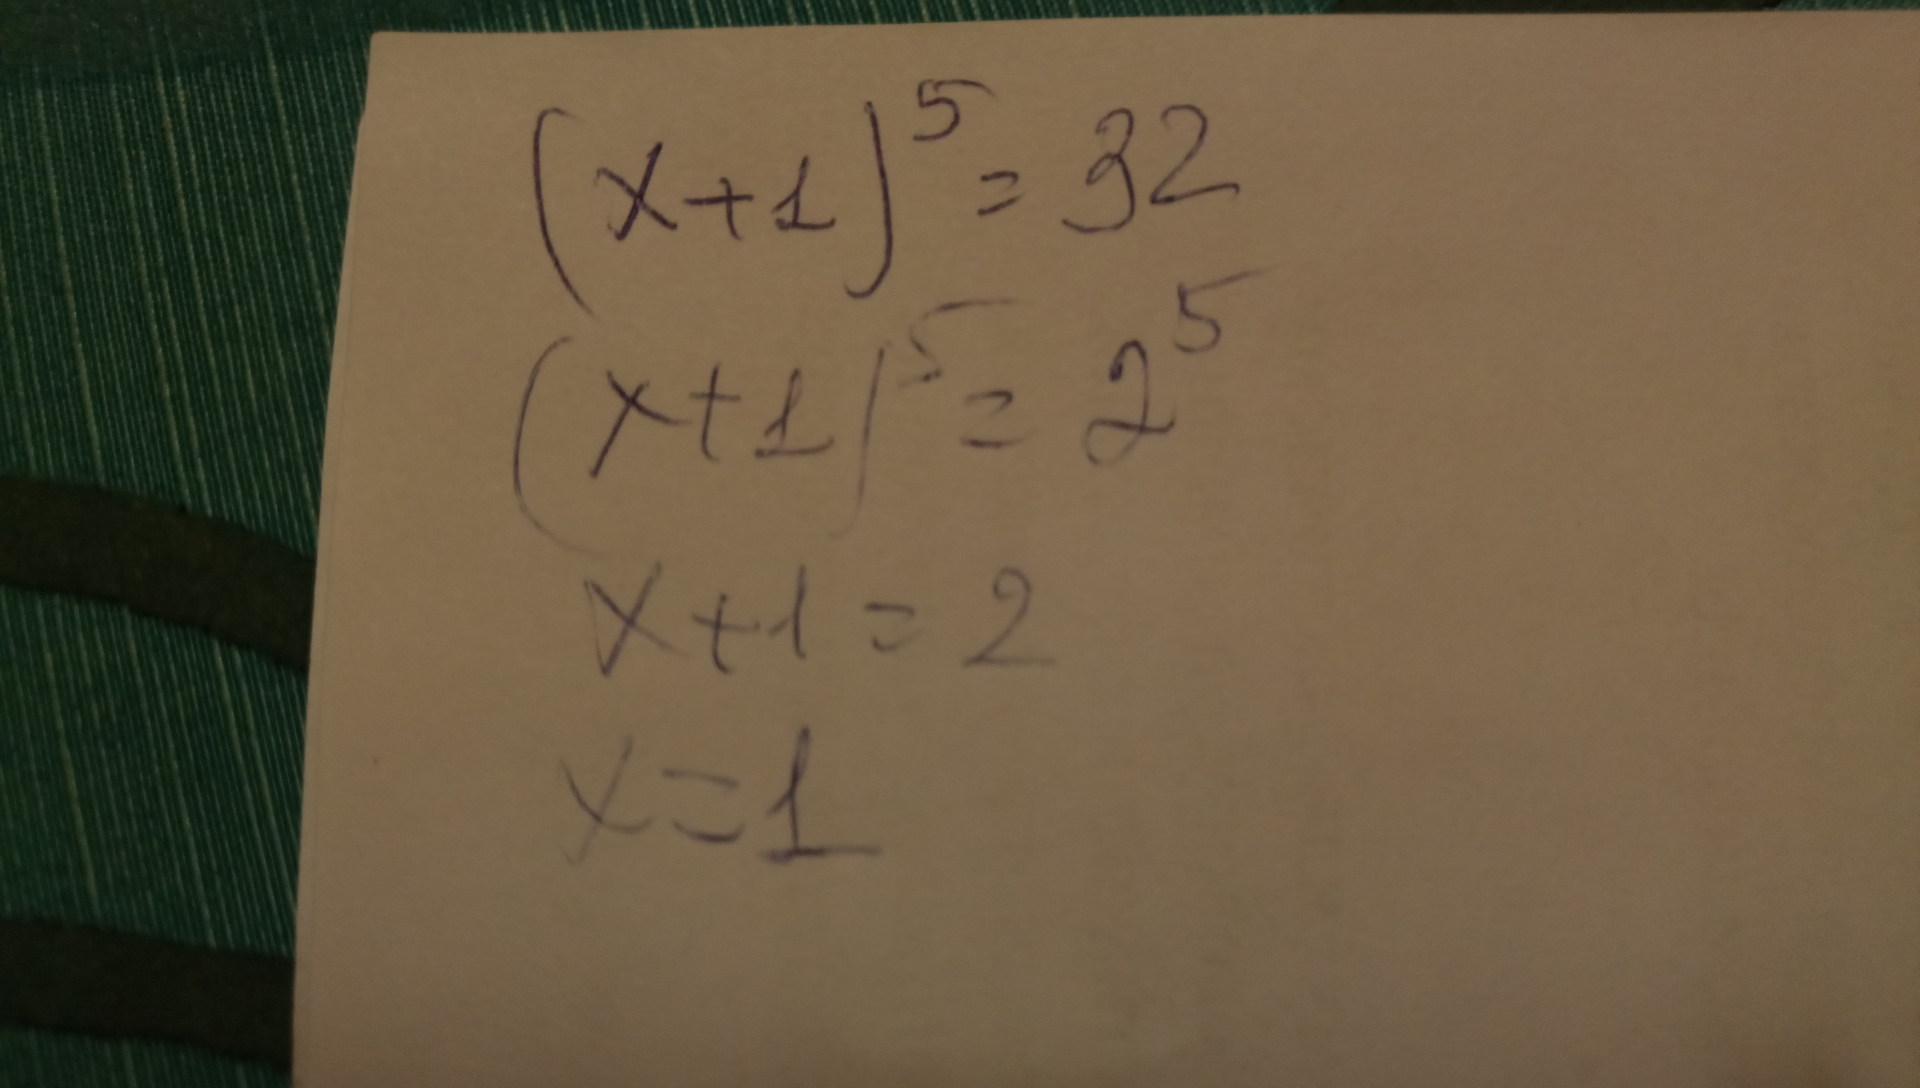 (x+1)⁵ = 32
(x+1)⁵ = 2⁵
x+1 = 2
x=1